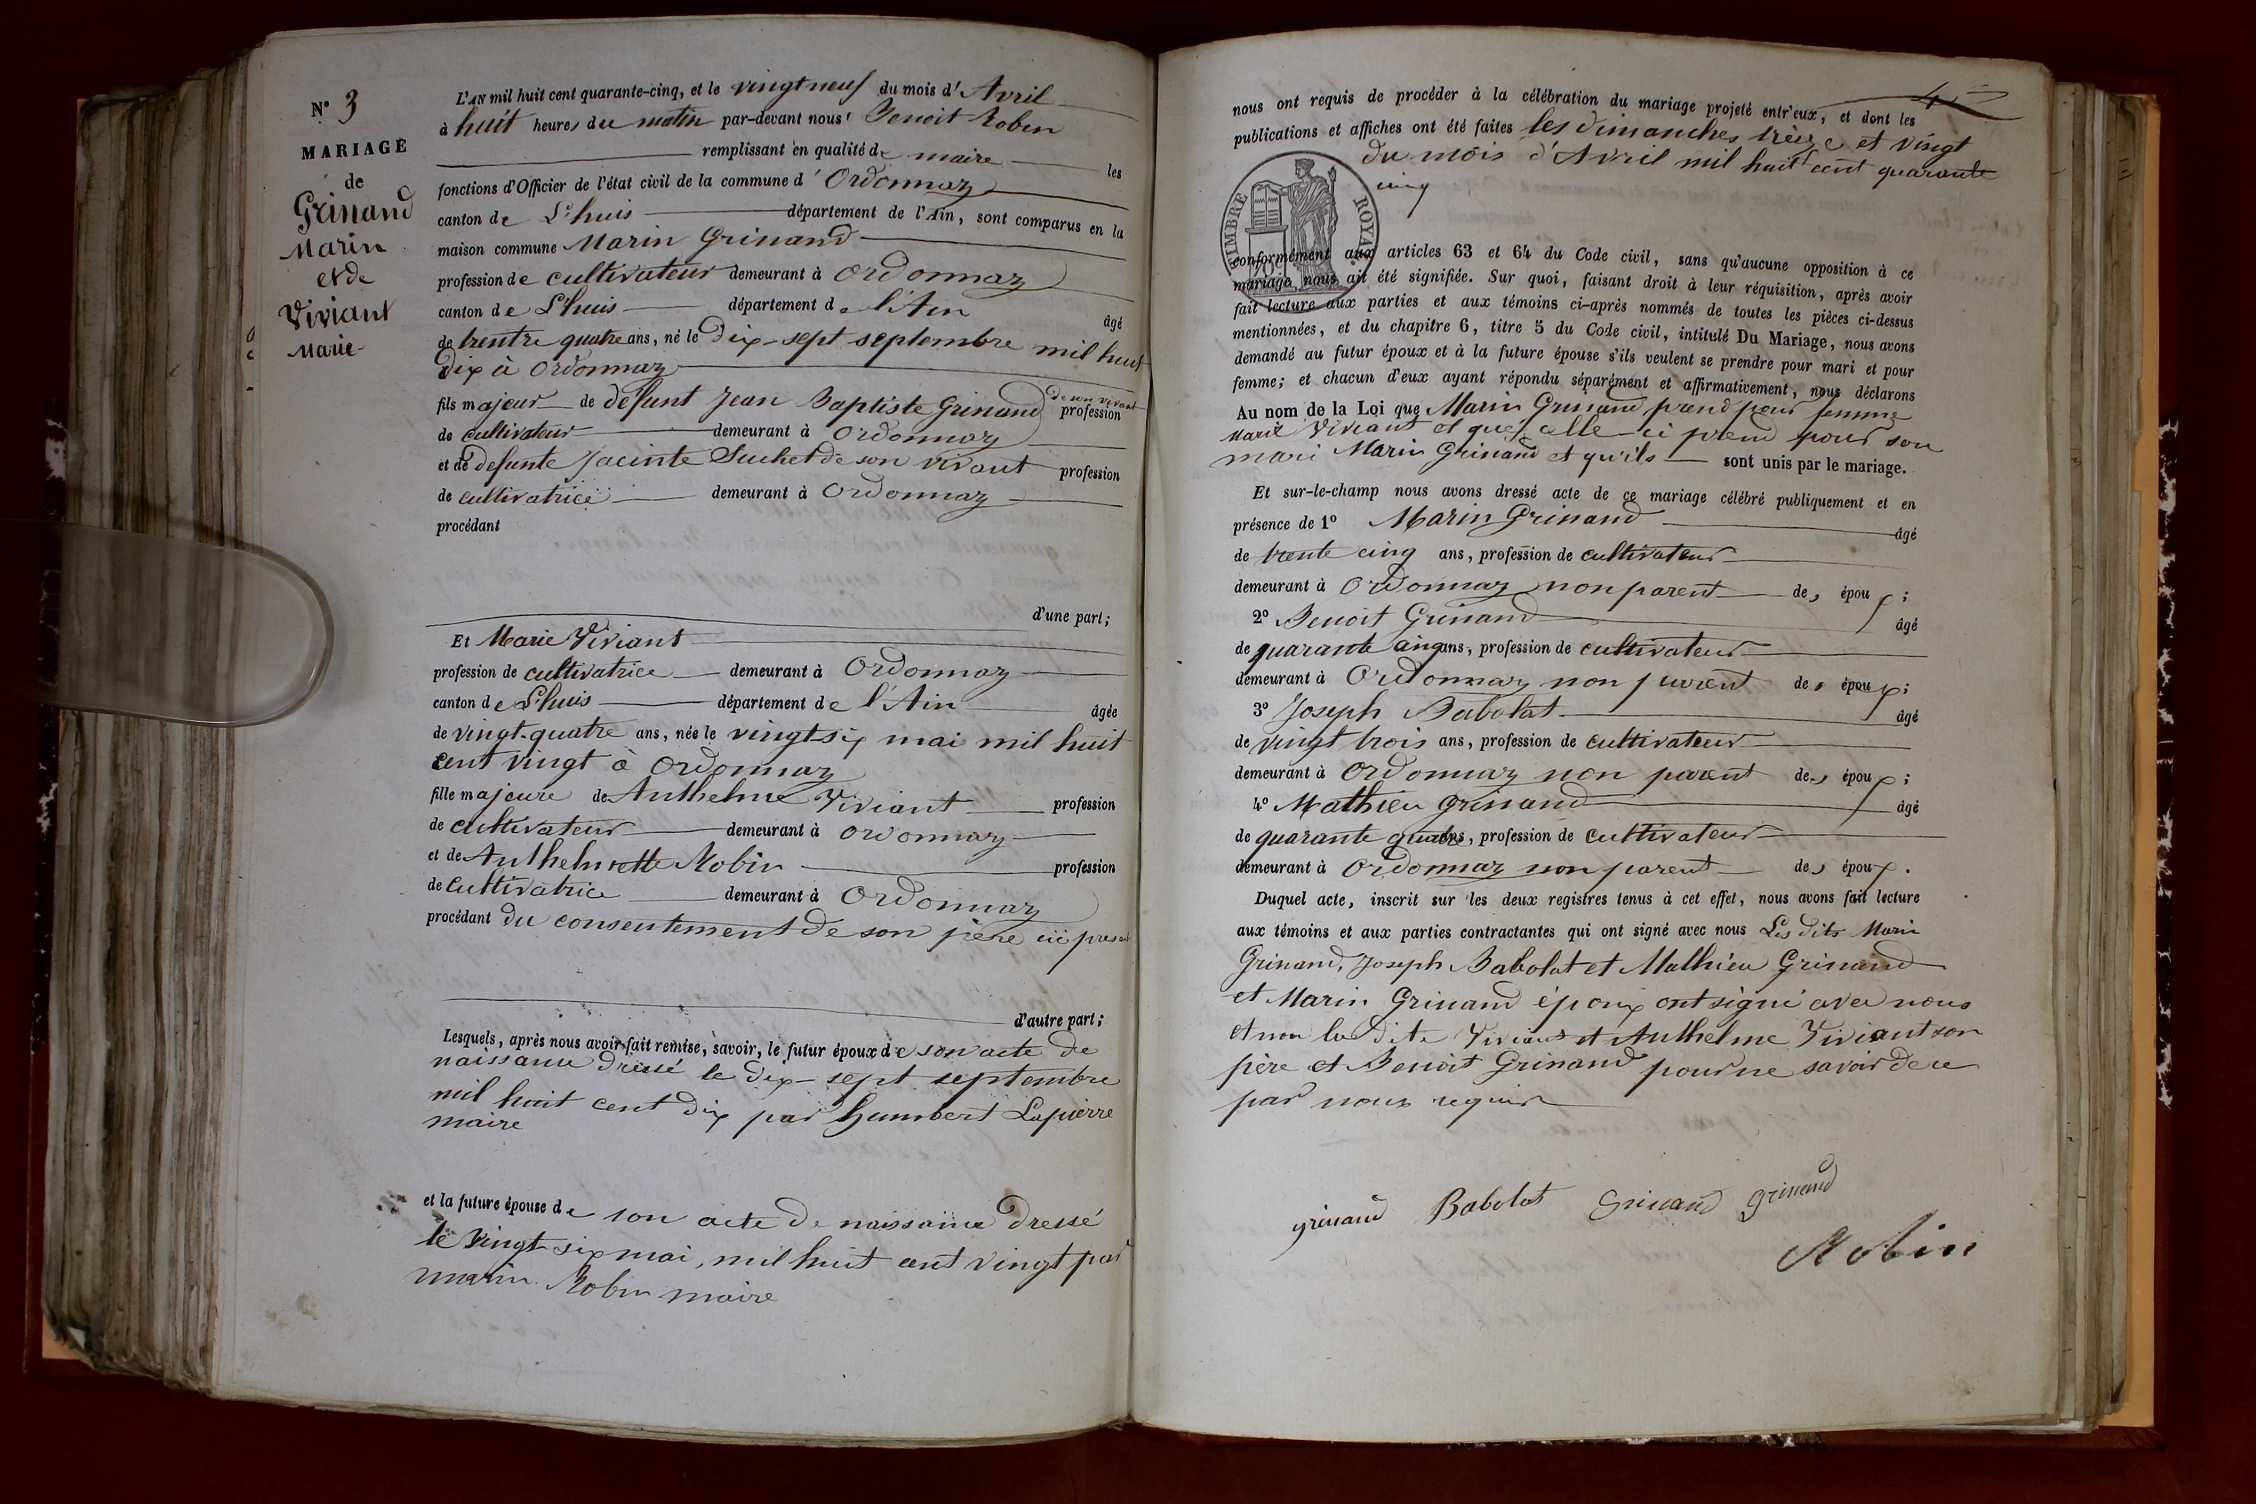 N° 3
MARIAGE
de
Grinand
Marin
et de
Viviant
Marie
L'AN mil huit cent quarante-cinq, et le vingt neuf du mois d'Avril
à huit heures du matin par-devant nous Benoit Robin
remplissant en qualité de maire les
fonctions d'Officier de l'état civil de la commune d'Ordonnaz
canton de L'huis département de l'Ain, sont comparus en la
maison commune Marin Grinand
profession de cultivateur demeurant à Ordonnaz
canton de L'huis département de l'Ain
âgé
de trentre quatre ans, né le Dix-sept septembre mil huit
Dix à Ordonnaz
fils majeur de défunt Jean Baptiste Grinand de son vivant profession
de cultivateur demeurant à Ordonnaz
et de défunte Jacinte Suchet de son vivant profession
de cultivatrice demeurant à Ordonnaz
procédant
d'une part;
Et Marie Viviant
profession de cultivatrice demeurant à Ordonnaz
canton de L'huis département de l'Ain âgée
de vingt-quatre ans, née le vingt-six mai mil huit
cent vingt à Ordonnaz
fille majeure de Anthelme Viviant profession
de cultivateur demeurant à Ordonnaz
et de Anthelmette Robin profession
de cultivatrice demeurant à Ordonnaz
procédant du consentement de son père ici present
d'autre part;
Lesquels, après nous avoir fait remise, savoir, le futur époux de son acte de
naissance dressé le dix-sept septembre
mil huit cent dix par Humbert Lapierre
maire
et la future épouse de son acte de naissance dressé
le vingt-six mai, mil huit cent vingt par
marin Robin maire
nous ont requis de procéder à la célébration du mariage projeté entr'eux, et dont les
publications et affiches ont été faites les dimanches trèize et vingt
du mois d'Avril mil huit cent quarante
cinq
TIMBRE ROYAL
conformément aux articles 63 et 64 du Code civil, sans qu'aucune opposition à ce
mariage nous ait été signifiée. Sur quoi, faisant droit à leur réquisition, après avoir
fait lecture aux parties et aux témoins ci-après nommés de toutes les pièces ci-dessus
mentionnées, et du chapitre 6, titre 5 du Code civil, intitulé Du Mariage, nous avons
demandé au futur époux et à la future épouse s'ils veulent se prendre pour mari et pour
femme; et chacun d'eux ayant répondu séparément et affirmativement, nous déclarons
Au nom de la Loi que Marin Grinand prend pour femme
Marie Viviant et que celle-ci prend pour son
mari Marin Grinand et qu'ils sont unis par le mariage.
Et sur-le-champ nous avons dressé acte de ce mariage célébré publiquement et en
présence de 1° Marin Grinand âgé
de trente cinq ans, profession de cultivateur
demeurant à Ordonnaz non parent des époux;
2° Benoit Grinand âgé
de quarante cinq ans, profession de cultivateur
demeurant à Ordonnaz non parent des époux;
3° Joseph Babolat âgé
de vingt trois ans, profession de cultivateur
demeurant à Ordonnaz non parent des époux;
4° Mathieu Grinand âgé
de quarante quatre ans, profession de cultivateur
demeurant à Ordonnaz non parent des époux.
Duquel acte, inscrit sur les deux registres tenus à cet effet, nous avons fait lecture
aux témoins et aux parties contractantes qui ont signé avec nous Les dits Marin
Grinand, Joseph Babolat et Mathieu Grinand
et Marin Grinand époux ont signé avec nous
et non la dite Viviant et Anthelme Viviant son
père et Benoit Grinand pour ne savoir de ce
par nous requis
grinand Babolat Grinand grinand
Robin